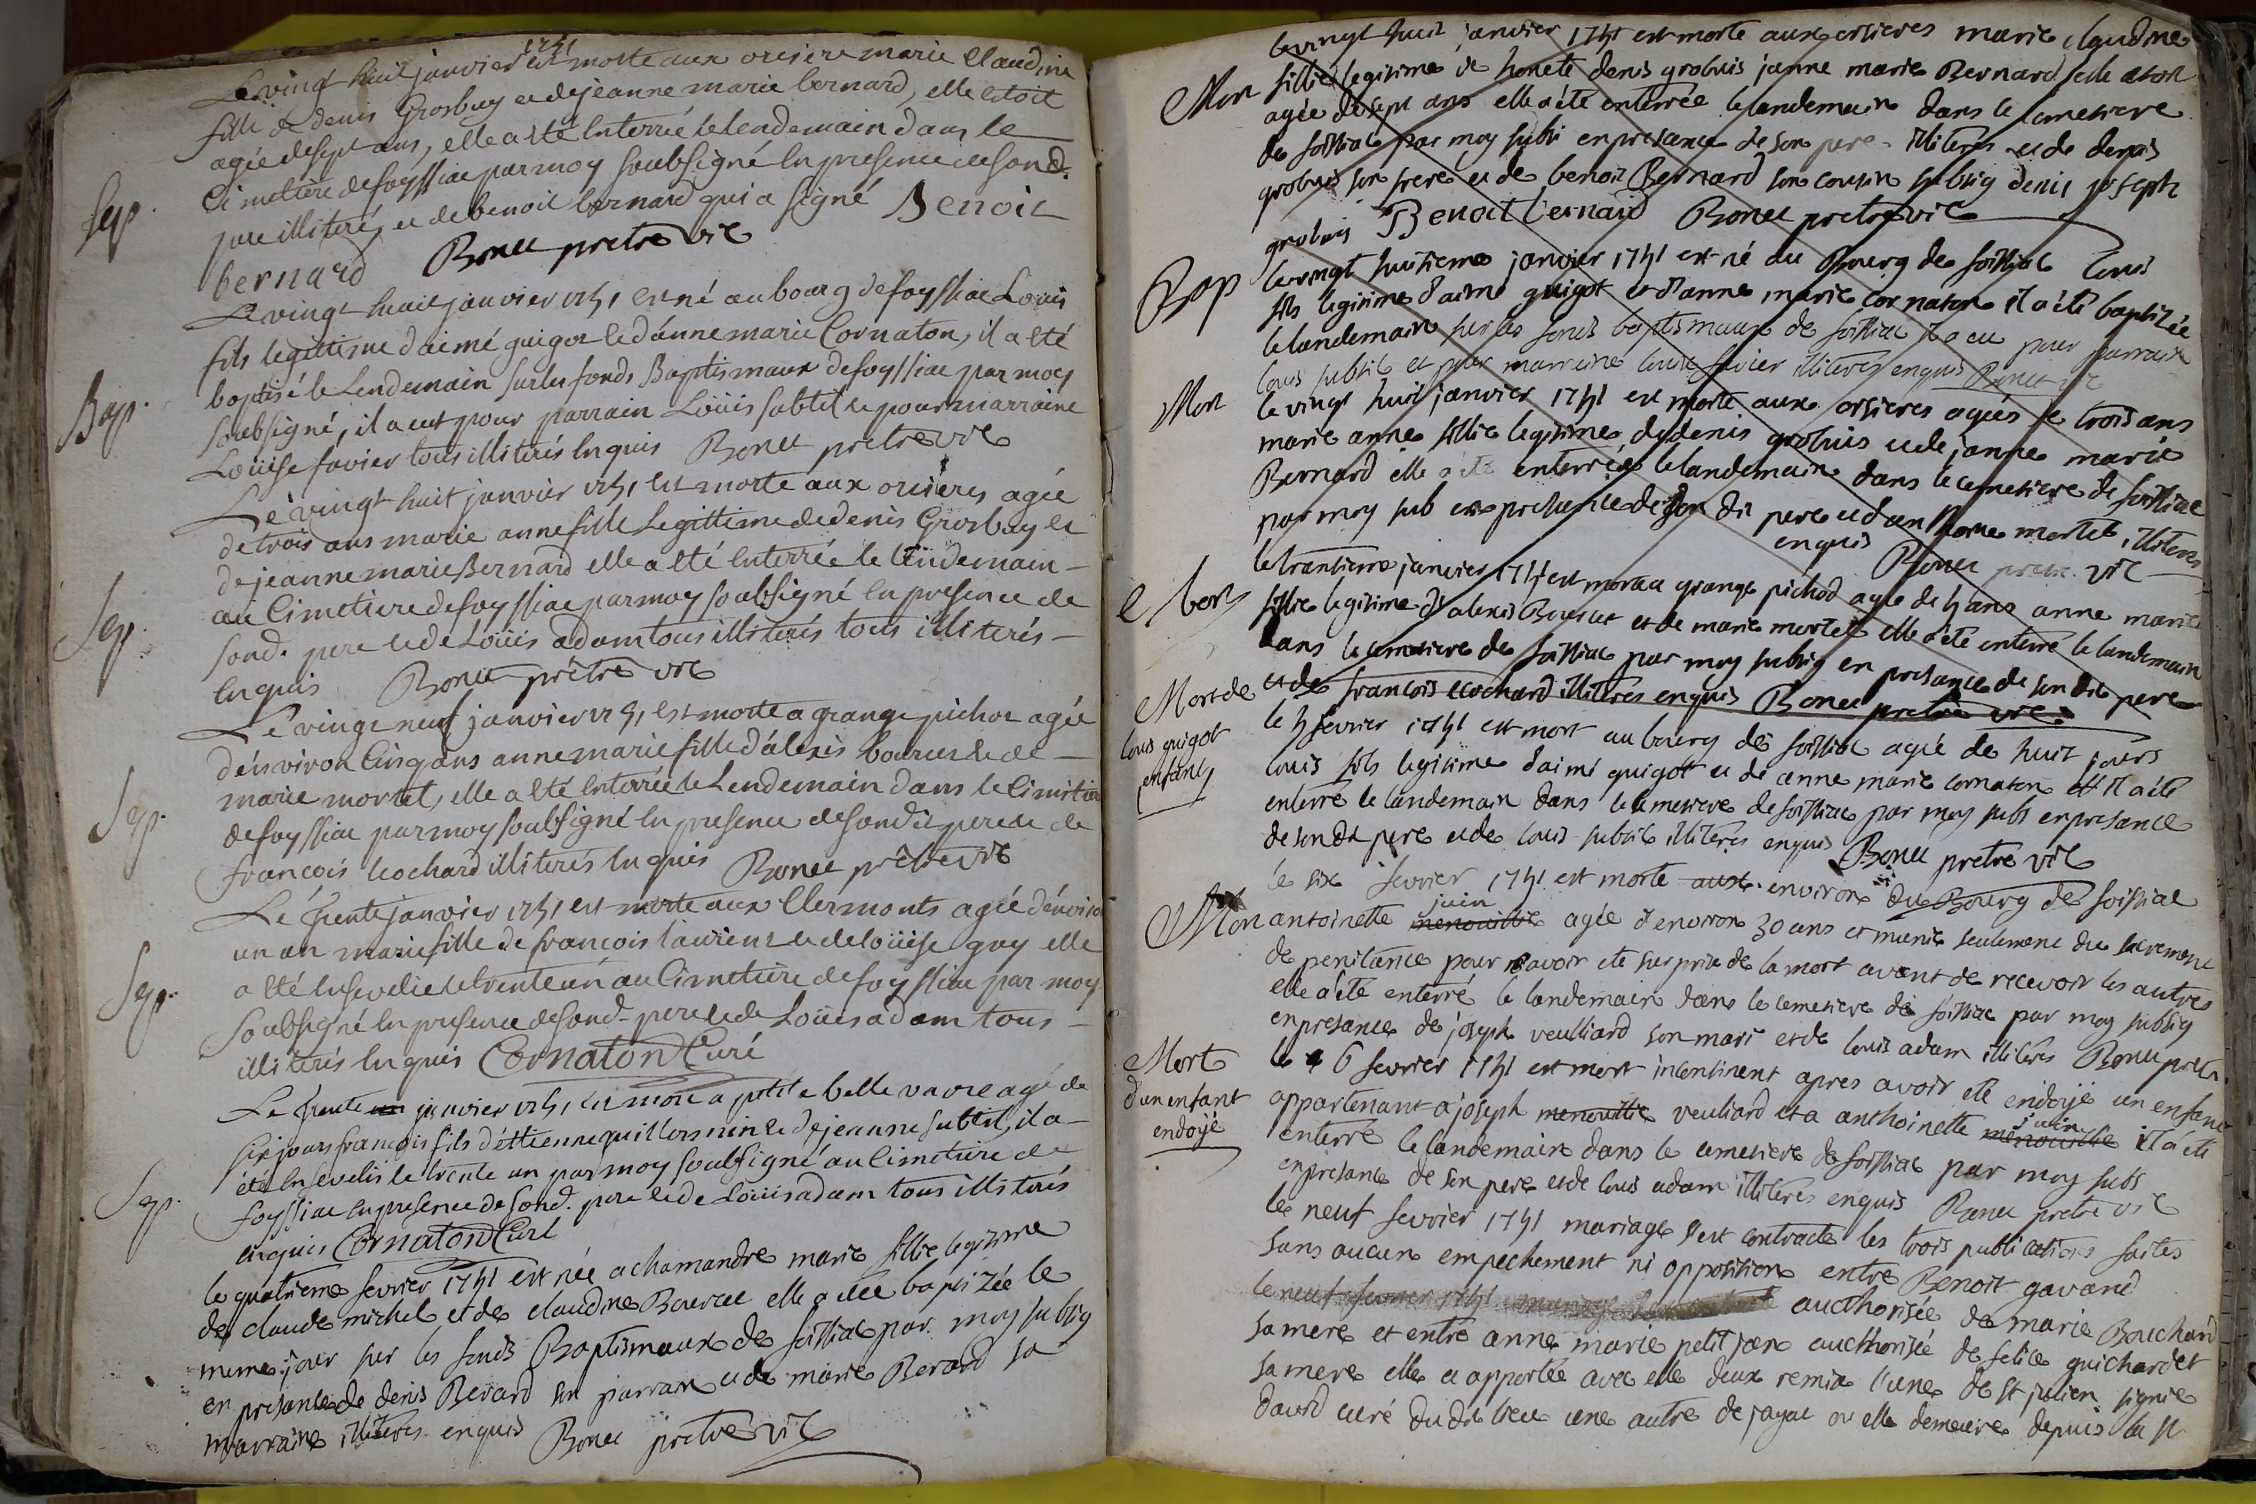 Le vingt huit janvier 1741 est morte aux orciere marie Claudine
fille de denis Grosbuy et de jeanne marie bernard, elle estoit
agée de sept ans, elle a été Enterrée le lendemain dans le
Sep. Cimetiere de foyssiac par moy soubsigné En presence de sond.
pere illiteré, et de benoit bernard qui a signé Benoit
bernard Bonet pretre vic
Le vingt huit janvier 1741 est né au bourg de foyssiac Louis
fils legitisme d'aimé guigot et d'anne marie Cornaton, il a eté
Bap. baptisé le Lendemain sur les fonds Baptismaux de foyssiac par moy
soubsigné, il a eut pour parrain Loüis subtil et pour marraine
Loüise favier tous illiterés Enquis Bonet pretre vic
Le vingt huit janvier 1741 est morte aux orcieres agée
de trois ans marie anne fille Legittime de denis Grosbuy et
de jeanne marie Bernard elle a été Enterrée le Lendemain
Sep. au Cimetiere de foyssiac par moy soubsigné En presence de
sond. pere et de Loüis adam tous illiterés tous illiterés
Enquis Bonet prêtre vic
Le vingt neuf janvier 1741 est morte a grange pichot agée
d'environ Cinq ans anne marie fille d'alexis bourcet et de
marie mortel, elle a eté Enterrée le Lendemain dans le Cimetiere
Sep. de foyssiac par moy soubsigné En presence de sondit pere et de
françois cochard illiterés Enquis Bonet prêtre vic
Le trente janvier 1741 est morte aux Clermonts agée d'environ
un an marie fille de françois laurent et de Loüise guy elle
a eté Ensevelie le trente un au Cimetiere de foyssiac par moy
Sep. soubsigné En presence de sond. pere et de Loüis adam tous
illiterés Enquis Cornaton Curé
Le trente un janvier 1741 est mort a petite belle vavre agé de
six jours françois fils d'éttienne quillermin et de jeanne subtil, il a
été Ensevelis le trente un par moy soubsigné au Cimetiere de
Sep. foyssiac En presence de sond. pere et de Loüis adam tous illiterés
enquis Cornaton Curé
le quatrieme fevrier 1741 est née a chamandre marie fillie legitime
de claude michel et de claudine Bourcet elle a été baptizée le
meme jour sur les fonds Baptismaux de foissiac par moy subsig
en presance de denis Berard son parrain et de marie Berard sa
marraine illiteres enquis Bonet pretre vic
le vingt huit janvier 1741 est morte aux orsieres marie claudine
Mort fillie legitime de honete denis grobuis janne marie Bernard elle etoit
agée de sept ans elle a été enterrée le landemain dans le cemetiere
de foissiac par moy subs en presance de son pere illiteres et de denis
grobuis son frere et de benoit Bernard son cousin subsig denis joseph
grobuis Benoit bernard Bonet pretre vic
Bap le vingt huitieme janvier 1741 est né au Bourg de foissiac Louis
fils legitime d'aimé guigot et d'anne marie cornaton il a été baptizée
le landemain sur les fonds baptismaux de foissiac il a eu pour parrain
louis subtil et pour marraine louise favier illiterés enquis Bonet vic
Mort le vingt huit janvier 1741 est morte aux orsieres agées de trois ans
marie anne fillie legitime de denis grobuis et de janne marie
Bernard elle a été enterrée le landemain dans le cemetiere de foissiac
par moy sub en presance de son dit pere et d'an mortel illiteres
enquis Bonet pretre vic
le trantieme janvier 1741 est morte a grange pichod agée de 5 ans anne marie
fillie legitime d'alexis Bourcet et de marie mortel elle a été enterré le landemain
dans le cemetiere de foissiac par moy subsig en presance de son dit pere
et de francois cochard illiteres enquis Bonet pretre vic
Mort de louis guigot enfant le 5 fevrier 1741 est mort au bourg de foissiac agée de huit jours
louis fils legitime d'aimé guigot et de anne marie cornaton il a été
enterré le landemain dans le cemetiere de foissiac par moy subs en presance
de son dit pere et de louis subtil illiteres enquis Bonet pretre vic
le six fevrier 1741 est morte aux environ du Bourg de foissiac
Mort antoinette menouillie juin agée d'environ 30 ans et munie seulement du sacrement
de penitance pour n'avoir été surprise de la mort avant de recevoir les autres
elle a été enterré le landemain dans le cemetiere de foissiac par moy subsig
en presance de joseph veulliard son mari et de louis adam illiteres Bonet pretre
Mort d'un enfant endoyé le 6 fevrier 1741 est mort incontinent apres avoir été endoyé un enfant
appartenant a joseph menouillie veuliard et a anthoinette menouillie juin il a été
enterré le landemain dans le cemetiere de foissiac par moy subs
en presance de son pere et de louis adam illiteres enquis Bonet pretre vic
le neuf fevrier 1741 mariage s'est contracté les trois publications faites
sans aucun empechement ni opposition entre Benoit gavand
le neuf fevrier 1741 mariage aucthorisée de marie Bouchard
sa mere et entre anne marie petit jean aucthorisée de felice guichardet
sa mere elle a apportée avec elle deux remise l'une de st julien signée
david curé dudit lieu une autre de jayat ou elle demeure depuis la st